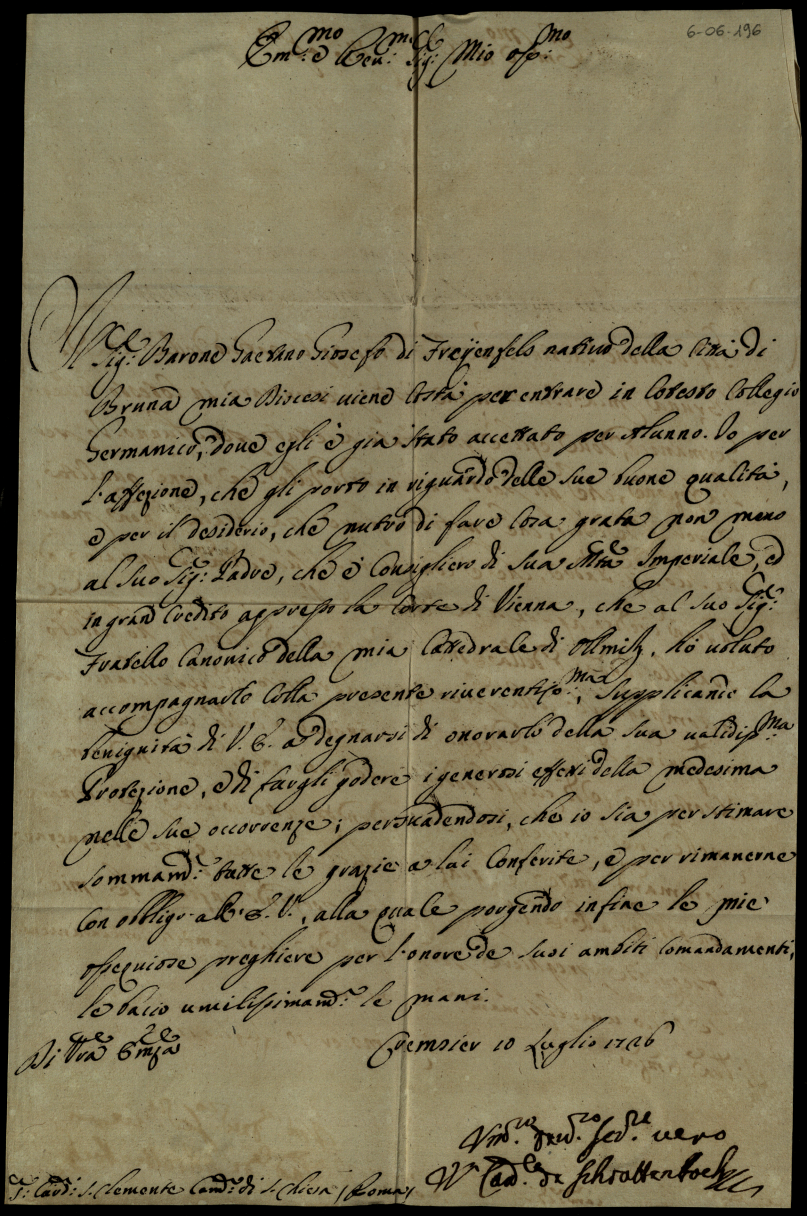 6-06-196
Em:mo e Rev:mo Sig:e Mio oss:mo
Il Sig:re Barone Gaetano Gioseffo di Freÿenfels nativo della Città di
Bruna mia Diocesi viene costà per entrare in cotesto Collegio
Germanico, dove egli è già stato accettato per Alunno. Io per
l'affezione, che gli porto in riguardo delle sue buone qualità,
e per il desiderio, che nutro di fare cosa grata non meno
al suo Sig:e Padre, che è Consigliero di sua Mtà Imperiale, ed
in gran credito appresso la Corte di Vienna, che al suo Sig:re
Fratello Canonico della mia Cattedrale di Olmitz, hò voluto
accompagnarlo colla presente riverentiss:ma, supplicando la
benignità di V. E. a degnarsi di onorarlo della sua validiss:ma
Protezione, e di fargli godere i generosi effetti della medesima
nelle sue occorrenze; persuadendosi, che io sia per stimare
sommam:e tutte le grazie a lui conferite, e per rimanerne
con obbligo all' E. V., alla quale porgendo infine le mie
ossequiose preghiere per l'onore de suoi ambiti comandamenti,
le bacio umilissimam:e le mani.
Di Vra Emza
Cremsier 10 Luglio 1726
Um:o Dev:o Ser:re vero
W Card:le de Schrottenbach
S: Clemente Cam:e di S. Chiesa / Roma /